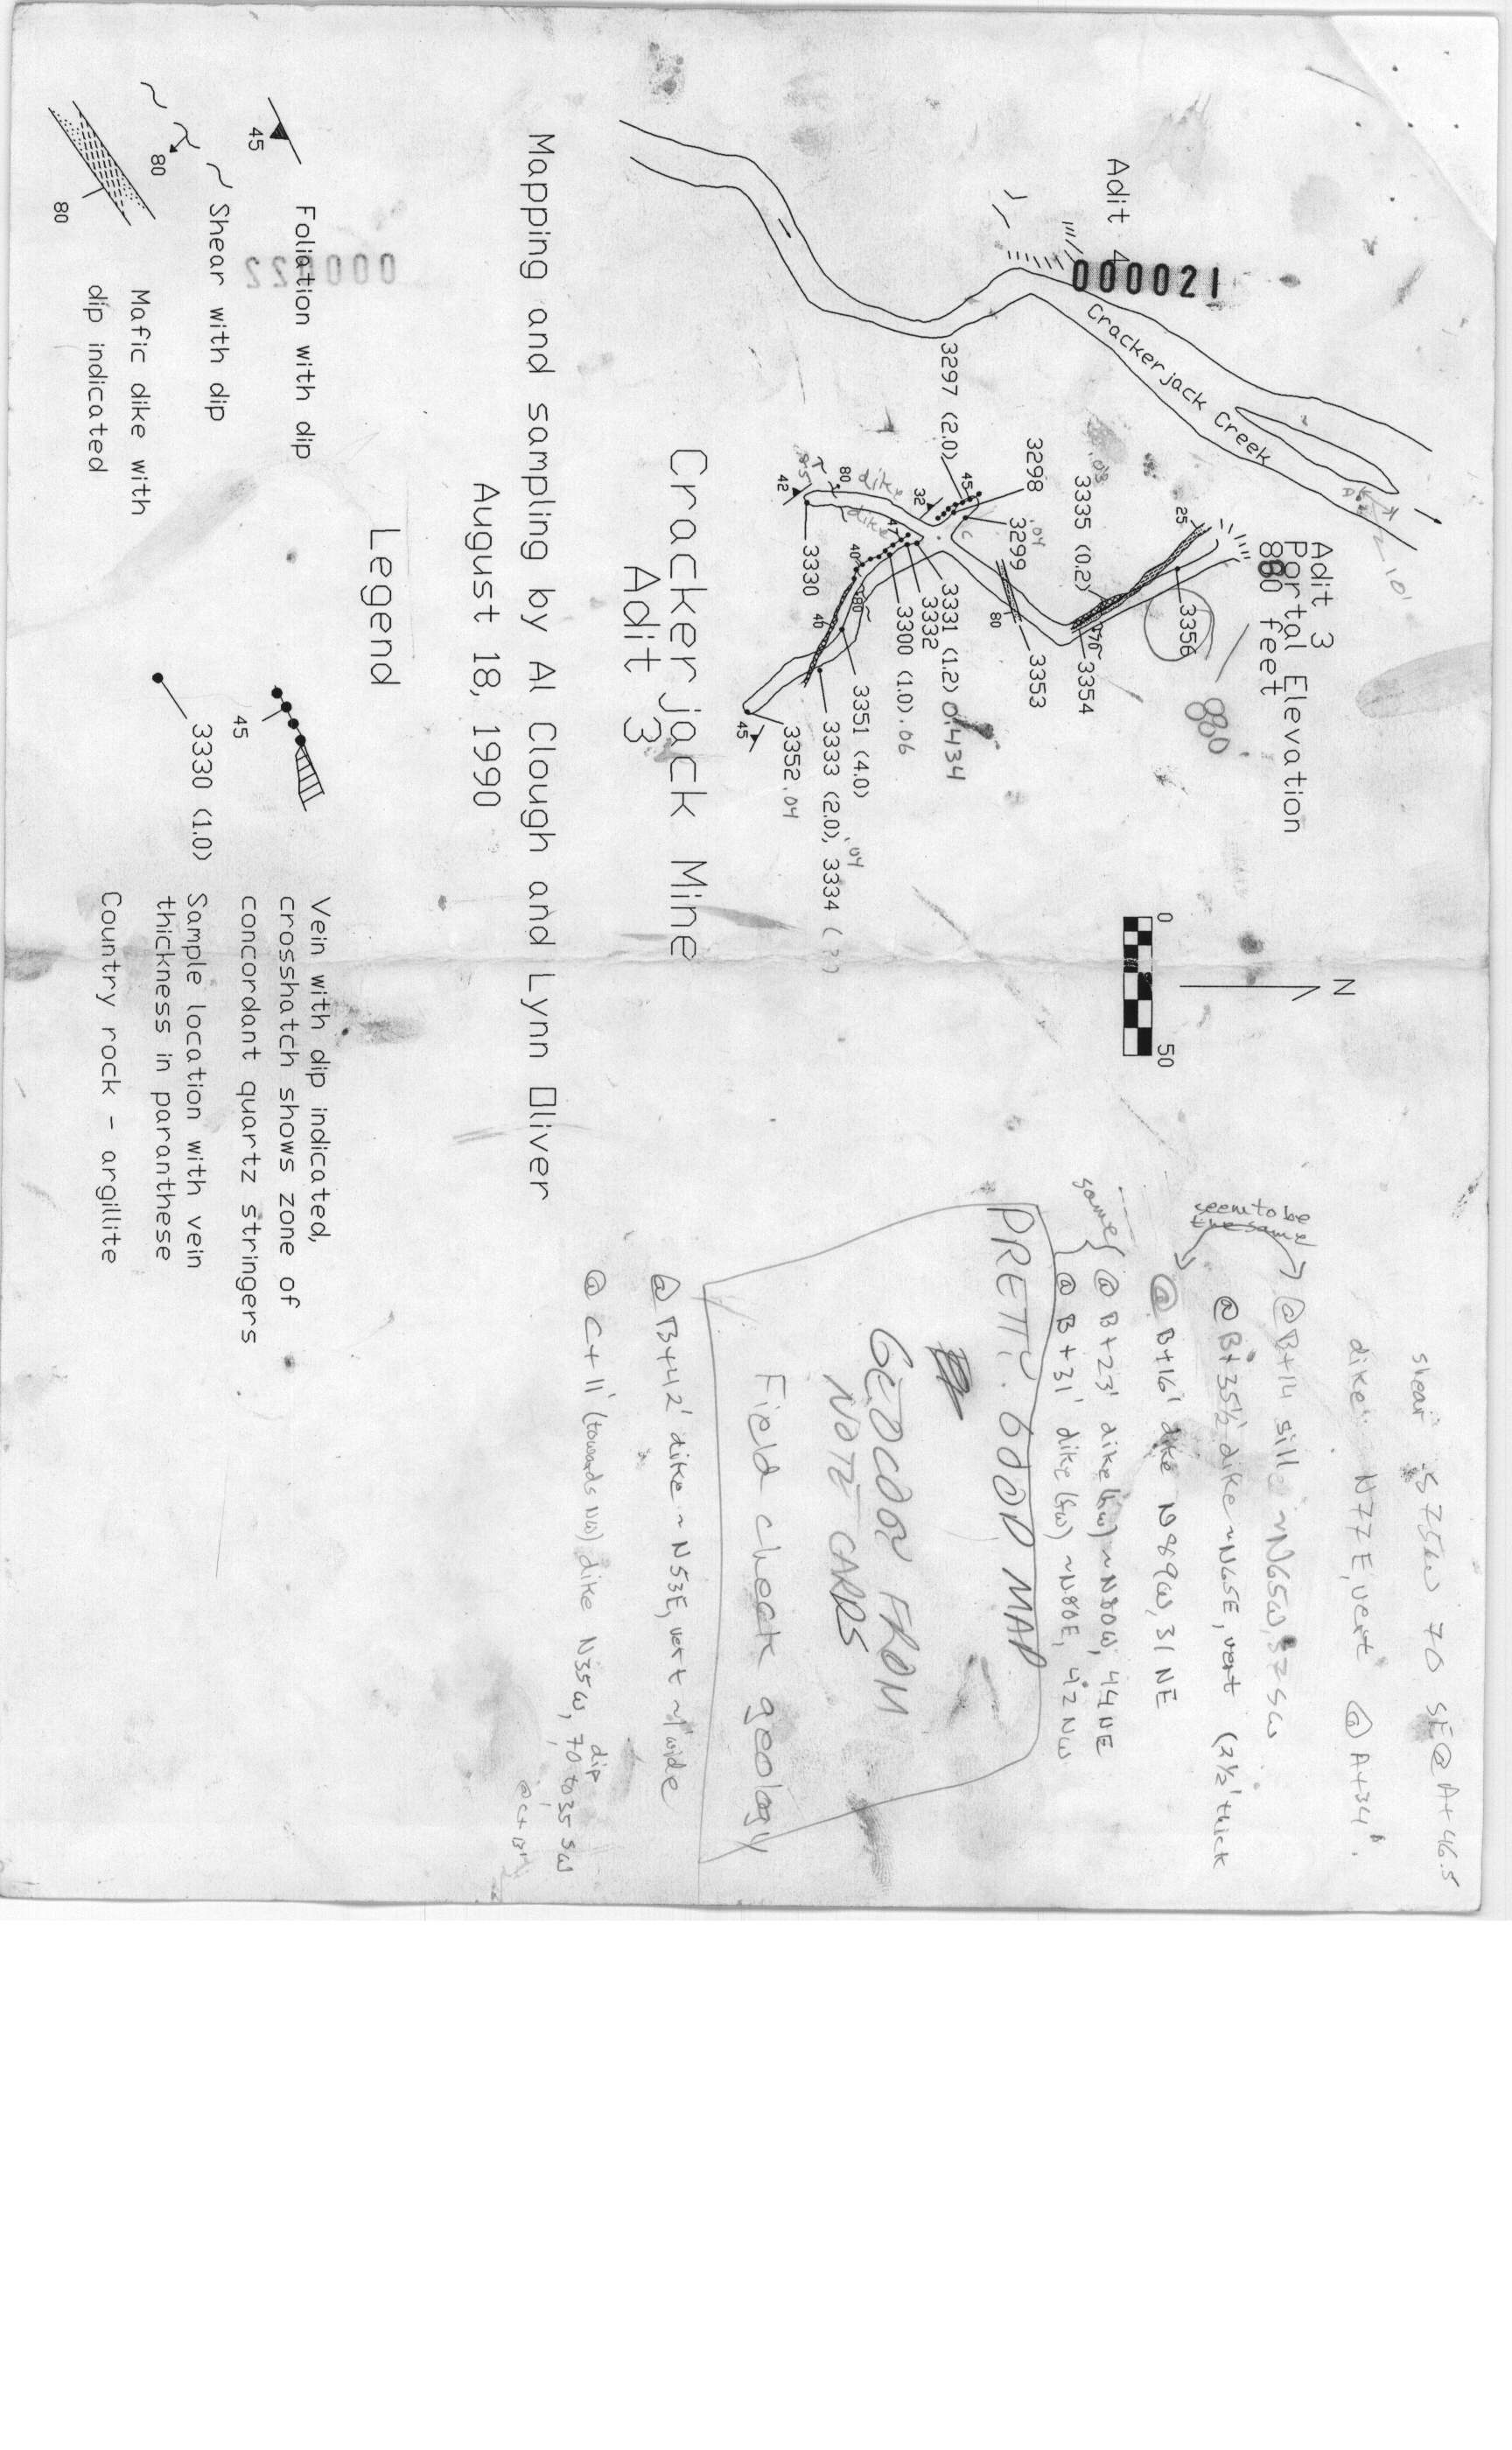 shear S75W 70 SE @ A+46.5
dike N77E, vert @ A+34'
seem to be
the same
@ B+14 sill ~N65W, 32SW
@ B+35½' dike ~N65E, vert (2½' thick
@ B+16' dike N89W, 31NE
same
@ B+23' dike (hw) ~N80W, 44NE
@ B+31' dike (fw) ~N80E, 42NW
PRETTY GOOD MAP
GEOCODE FROM
NOTE CARDS
Field check geology
@ B+42' dike ~N53E, vert ~1' wide
@ C+11' (towards NW) dike N35W, 70 to 35 SW
dip
N
0
50
Adit 3
Portal Elevation
880 feet
880
10'
Adit 4
000021
Crackerjack Creek
25
3356
70
3354
3335 (0.2)
.03
3353
80
3298
3299
.04
C
3297 (2.0)
45
32
3331 (1.2) 0.434
3332
3300 (1.0) .06
47
dike
dike
80
85
42
3330
40
80
40
3351 (4.0)
3333 (2.0), 3334 (??)
.04
3352 .04
45
Crackerjack Mine
Adit 3
Mapping and sampling by Al Clough and Lynn Oliver
August 18, 1990
Legend
45
Foliation with dip
000022
80
Shear with dip
80
Mafic dike with
dip indicated
45
Vein with dip indicated,
crosshatch shows zone of
concordant quartz stringers
3330 (1.0)
Sample location with vein
thickness in paranthese
Country rock - argillite